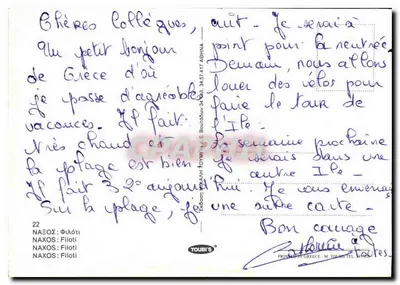 Chères Collègues,
Un petit bonjour
de Grèce d'où
je passe d'agréables
vacances. Il fait
très chaud et
la plage est bien
Il fait 32°
Sur la plage, j'y
cuit. Je serais à
point pour la rentrée
Demain, nous allons
louer des vélos pour
faire le tour de
l'Ile.
La semaine prochaine
je serais dans une
autre Ile
Rui. Je vous enverrai
une autre carte.
Bon courage
à toutes.
22
ΝΑΞΟΣ: Φιλότι
NAXOS: Filoti
NAXOS: Filoti
NAXOS: Filoti
TOUBI'S